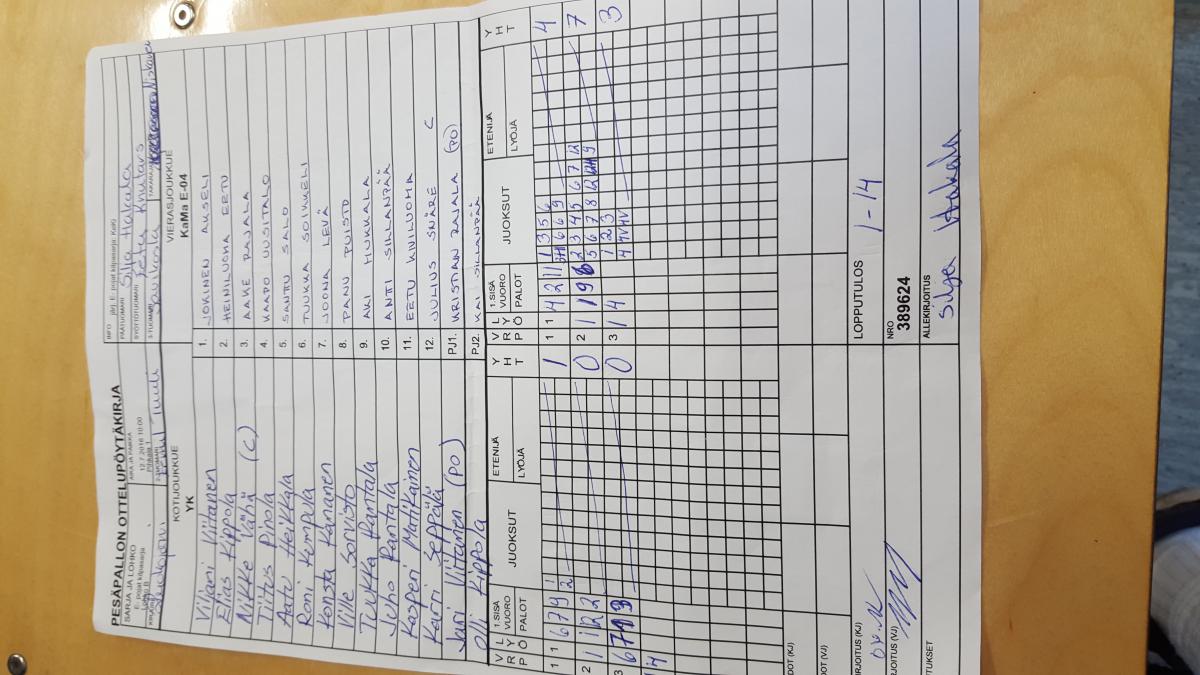 PESÄPALLON OTTELUPÖYTÄKIRJA
SARJA JA LOHKO
E- pojat kilpasarja
Lohko B
AIKA JA PAIKKA
12.7.2016 10:00
Pirkkala 1
INFO
PÄÄTUOMARI Silja Hakala
SYÖTTÖTUOMARI Eetu Knuters
KIRJURI
2-TUOMARI
3-TUOMARI
TAKARAJA
KOTIJOUKKUE
YK
Viljami Viitanen
Elias Kippola
Mikke Vähä (C)
Tiitus Pinola
Aatu Heikkala
Roni Kumpula
Konsta Kananen
Ville Sorvisto
Tuukka Rantala
Juho Rantala
Kasperi Matikainen
Karri Seppälä
Jari Viitanen (PO)
Olli Kippola
VIERASJOUKKUE
KaMa E-04
1. JOKINEN AUKSELI
2. HEINILUOMA EERTU
3. AAKE RAJALA
4. KAAPO UUSITALO
5. SANTTU SALO
6. TUUKKA SOINKELI
7. JOONA LEVÄ
8. PANU PUISTO
9. AKI HUKKALA
10. ANTTI SILLANPÄÄ
11. EETU KIVILUOMA
12. JULIUS SNÅRE C
PJ1. KRISTIAN RAJALA (PO)
PJ2. KAI SILLANPÄÄ
V L
R Y
P Ö
1.SISÄ
VUORO
PALOT
JUOKSUT
ETENIJÄ
LYÖJÄ
Y
H
T
1 1 6 7 9 1 2 1
2 1 1 2 2 0
3 6 7 9 0
V L
R Y
P Ö
1.SISÄ
VUORO
PALOT
JUOKSUT
ETENIJÄ
LYÖJÄ
Y
H
T
1 1 4 2 11 1 3 5 6 4
6 6 9
2 1 1 9 2 3 4 5 6 7 12 7
5 6 7 8 12 9
3 1 4 1 2 3 3
4
DOT (KJ)
DOT (VJ)
LOPPUTULOS 1-14
RJOITUS (KJ)
NRO
389624
RJOITUS (VJ)
ALLEKIRJOITUS
Silja Hakala
TUKSET